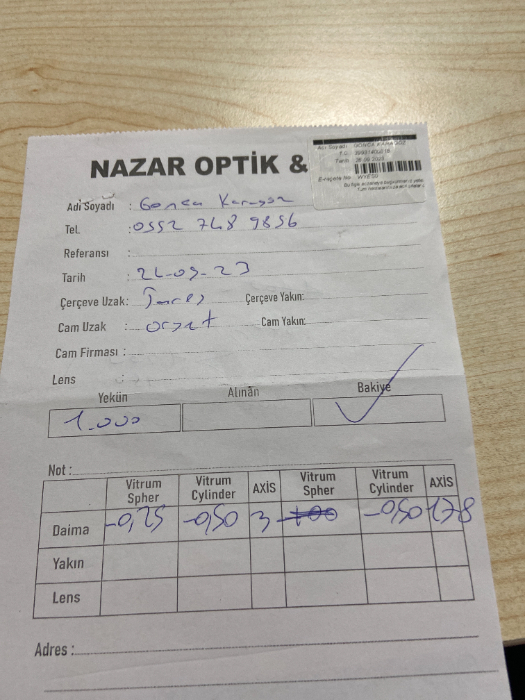 NAZAR OPTİK &
Adı Soyadı : Gonca
Tel. : 0552 748 9856
Referansı :
Tarih :
Çerçeve Uzak: Çerçeve Yakın:
Cam Uzak : Cam Yakın:
Cam Firması :
Lens :
Yekün Alınan Bakiye
1.000
Not :
Vitrum Spher Vitrum Cylinder AXİS Vitrum Spher Vitrum Cylinder AXİS
Daima -0,25 -0,50 3 -0,50 178
Yakın
Lens
Adres :